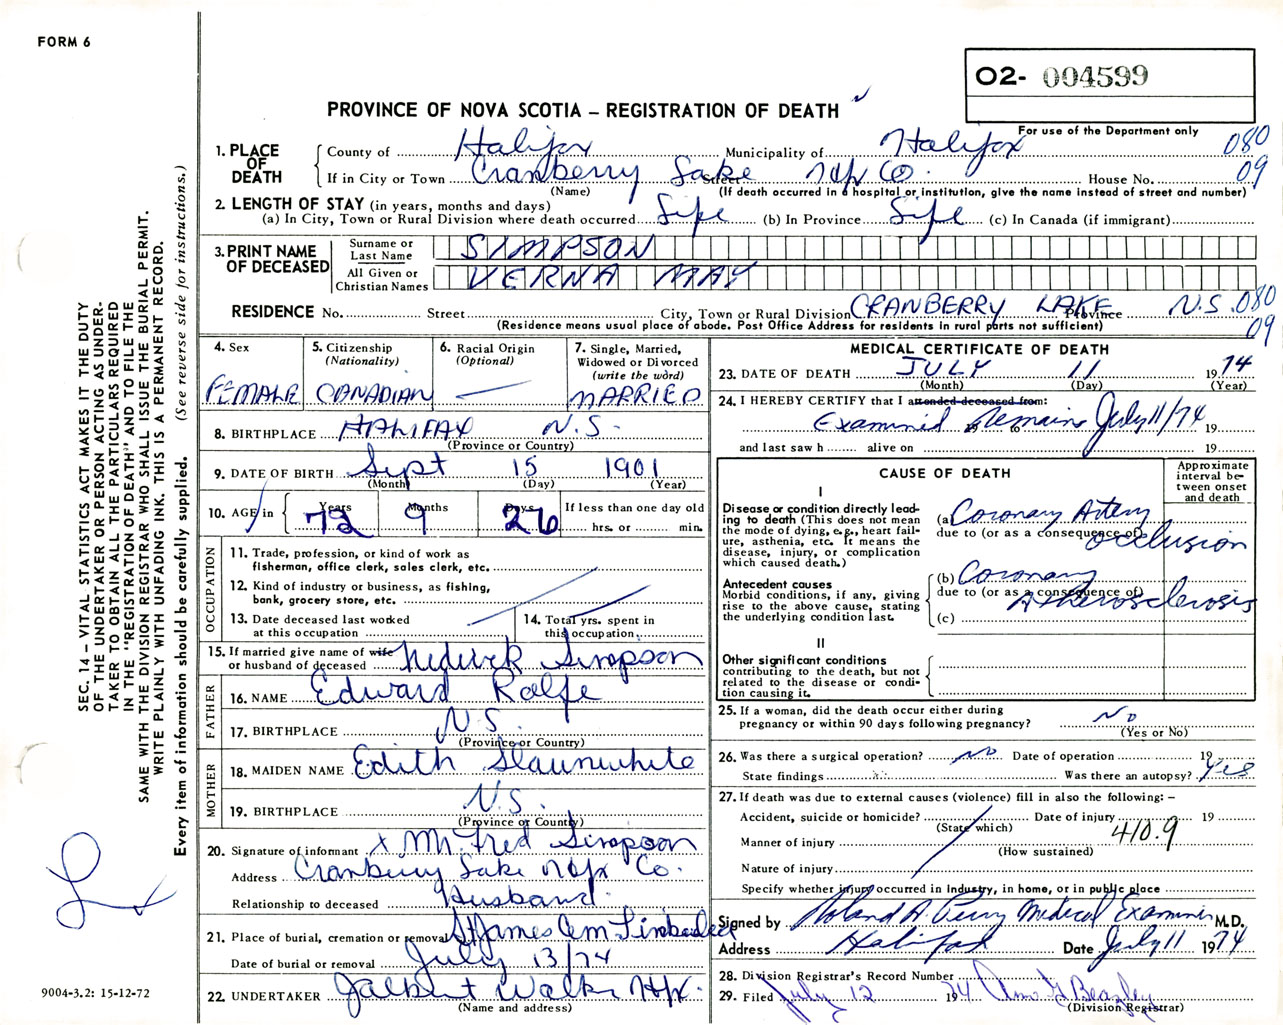 FORM 6
O2- 004599
PROVINCE OF NOVA SCOTIA – REGISTRATION OF DEATH
For use of the Department only
1. PLACE OF DEATH
County of Halifax Municipality of Halifax 080
If in City or Town Cranberry Lake Street Hfx Co. House No. 09
(Name) (If death occurred in a hospital or institution, give the name instead of street and number)
2. LENGTH OF STAY (in years, months and days)
(a) In City, Town or Rural Division where death occurred Life (b) In Province Life (c) In Canada (if immigrant)
3. PRINT NAME OF DECEASED
Surname or Last Name SIMPSON
All Given or Christian Names VERNA MAY
RESIDENCE No. Street City, Town or Rural Division CRANBERRY LAKE Province N.S. 080
(Residence means usual place of abode. Post Office Address for residents in rural parts not sufficient) 09
4. Sex
FEMALE
5. Citizenship
(Nationality)
CANADIAN
6. Racial Origin
(Optional)
—
7. Single, Married,
Widowed or Divorced
(write the word)
MARRIED
8. BIRTHPLACE HALIFAX N.S.
(Province or Country)
9. DATE OF BIRTH Sept 15 1901
(Month) (Day) (Year)
10. AGE in Years 72 Months 9 Days 26
If less than one day old
hrs. or min.
OCCUPATION
11. Trade, profession, or kind of work as
fisherman, office clerk, sales clerk, etc.
12. Kind of industry or business, as fishing,
bank, grocery store, etc.
13. Date deceased last worked
at this occupation
14. Total yrs. spent in
this occupation
15. If married give name of wife
or husband of deceased Simpson
FATHER
16. NAME Edward Rolfe
17. BIRTHPLACE N.S.
(Province or Country)
MOTHER
18. MAIDEN NAME Edith Slaunwhite
19. BIRTHPLACE N.S.
(Province or Country)
20. Signature of informant x Mr. Fred Simpson
Address Cranberry Lake Hfx Co.
Relationship to deceased Husband
21. Place of burial, cremation or removal St James Cem
Date of burial or removal July 13/74
22. UNDERTAKER Walker Hfx.
(Name and address)
MEDICAL CERTIFICATE OF DEATH
23. DATE OF DEATH JULY 11 1974
(Month) (Day) (Year)
24. I HEREBY CERTIFY that I attended deceased from:
Examined Remains July 11/74 19
and last saw h alive on 19
CAUSE OF DEATH
Approximate
interval be-
tween onset
and death
I
Disease or condition directly lead-
ing to death (This does not mean
the mode of dying, e.g., heart fail-
ure, asthenia, etc. It means the
disease, injury, or complication
which caused death.)
(a) Coronary Artery
due to (or as a consequence of) occlusion
Antecedent causes
Morbid conditions, if any, giving
rise to the above cause, stating
the underlying condition last.
(b) Coronary
due to (or as a consequence of) Atherosclerosis
(c)
II
Other significant conditions
contributing to the death, but not
related to the disease or condi-
tion causing it.
25. If a woman, did the death occur either during
pregnancy or within 90 days following pregnancy? No
(Yes or No)
26. Was there a surgical operation? No Date of operation 19
State findings Was there an autopsy? Yes
27. If death was due to external causes (violence) fill in also the following: –
Accident, suicide or homicide? Date of injury 19
(State which) 410.9
Manner of injury
(How sustained)
Nature of injury
Specify whether injury occurred in Industry, in home, or in public place
Signed by Roland A. Perry Medical Examiner M.D.
Address Halifax Date July 11 1974
28. Division Registrar's Record Number
29. Filed July 12 1974
(Division Registrar)
SEC. 14 – VITAL STATISTICS ACT MAKES IT THE DUTY
OF THE UNDERTAKER OR PERSON ACTING AS UNDER-
TAKER TO OBTAIN ALL THE PARTICULARS REQUIRED
IN THE "REGISTRATION OF DEATH" AND TO FILE THE
SAME WITH THE DIVISION REGISTRAR WHO SHALL ISSUE THE BURIAL PERMIT.
WRITE PLAINLY WITH UNFADING INK. THIS IS A PERMANENT RECORD.
Every item of information should be carefully supplied. (See reverse side for instructions.)
9004-3.2: 15-12-72